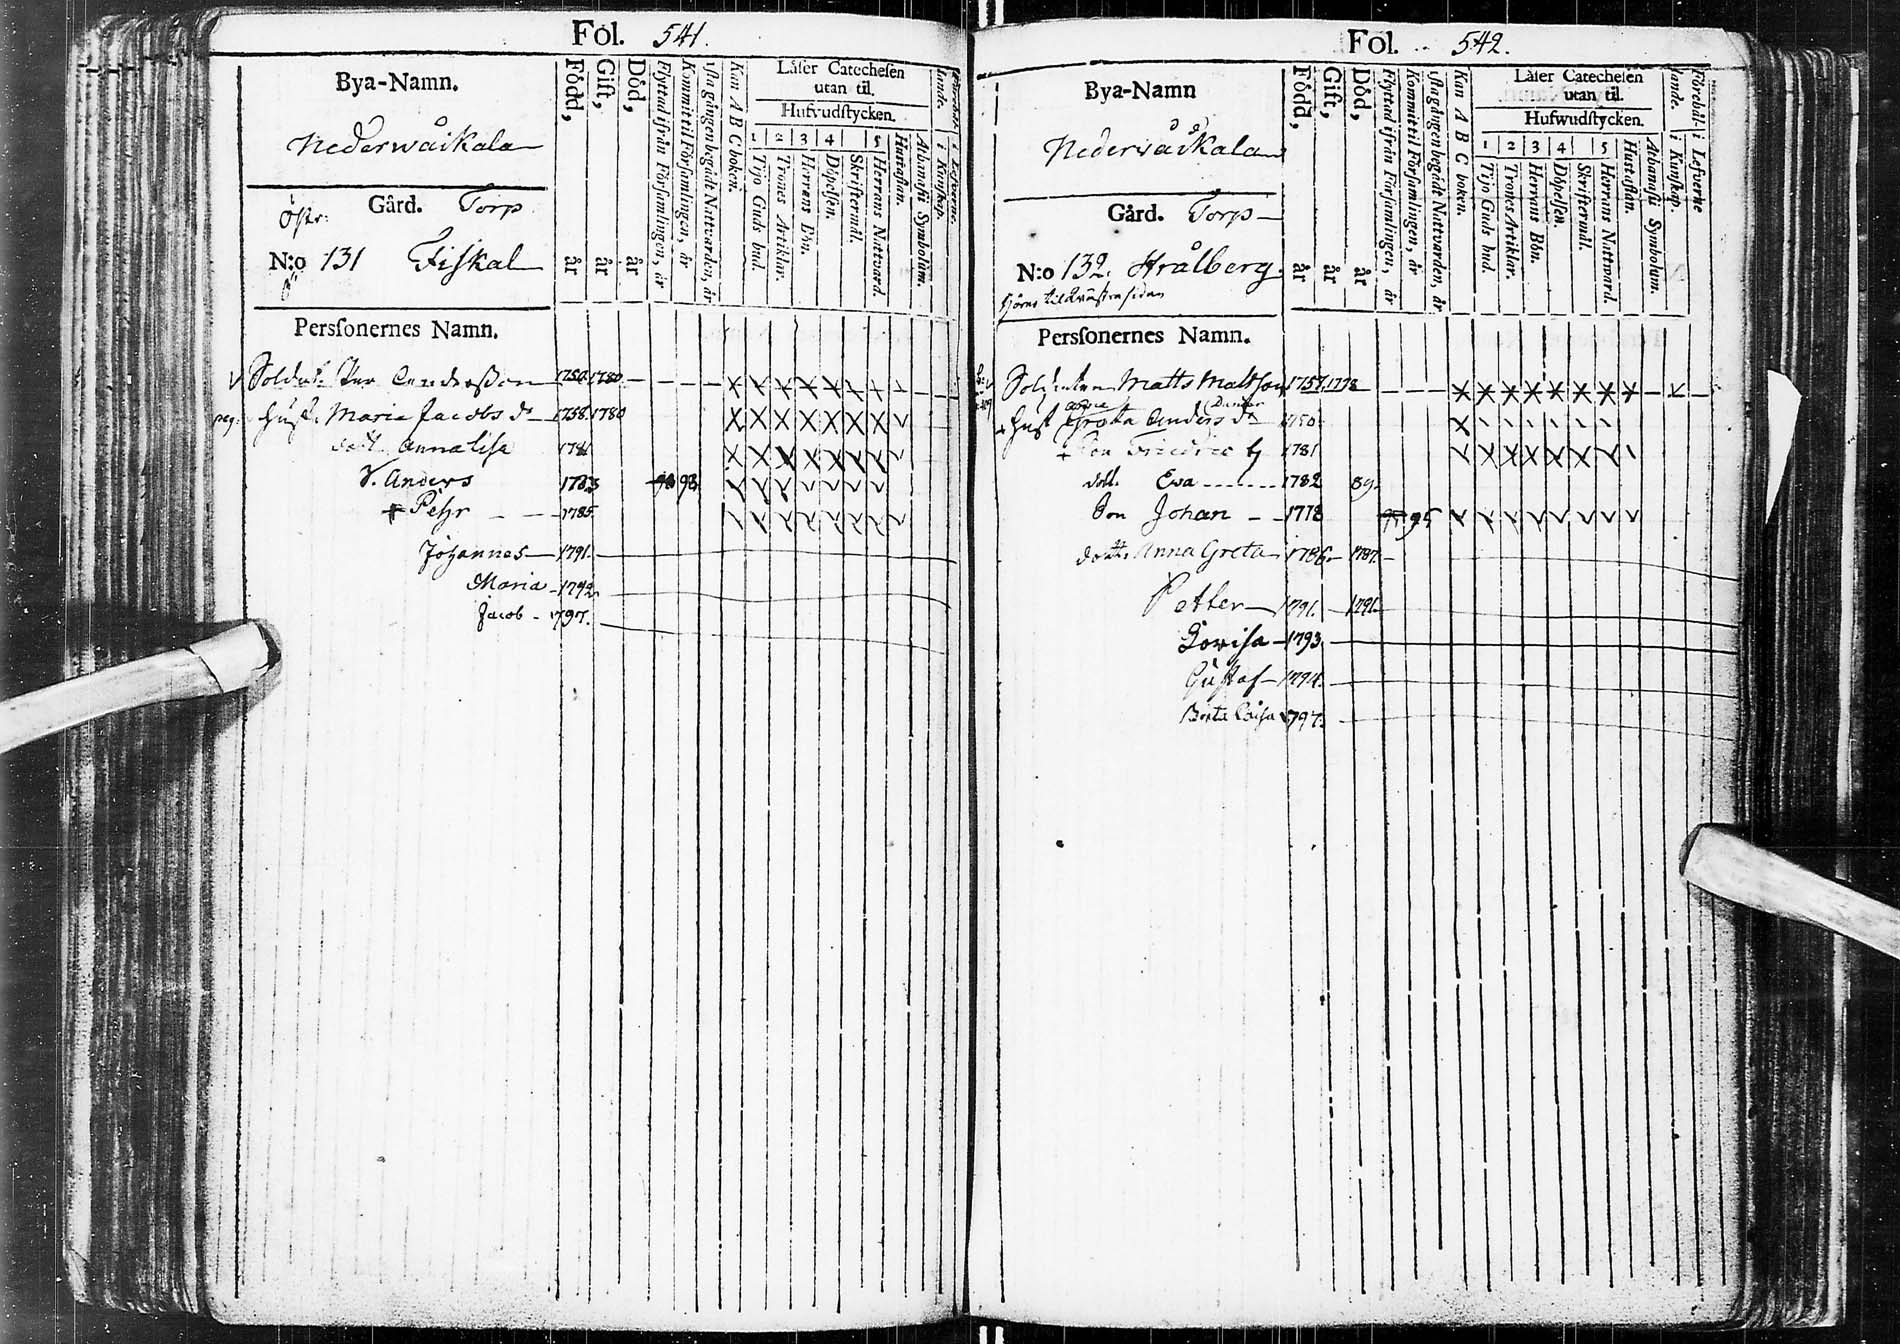 Fol. 541.
Bya-Namn.
Nederwåikala
Östr:
Gård. Torp
N:o 131 Fiskal
Född, år
Gift, år
Död, år
Flyttad ifrån Församlingen, år
Kommit til Församlingen, år
Kan A B C boken.
Läser Catechesen
utan til.
Hufvudstycken.
1 2 3 4 5
Tijo Guds bud.
Trones Artiklar.
Herrans Bön.
Döpelsen.
Skriftermål.
Herrans Nattvard.
Hustaflan.
Athanasii Symbolum.
Persfonernes Namn.
Soldat. Per Andersson 1750 1780
Hust. Maria Jacobs dr 1758. 1780
dott. Annalisa 1781
S. Anders 1783 93
Pehr 1785
Johannes 1791.
Maria 1792
Jacob 1797.
Fol. 542.
Bya-Namn
Nederwåikala
Gård. Torp
N:o 132. Strålberg
Född, år
Gift, år
Död, år
Flyttad ifrån Församlingen, år
Kommit til Församlingen, år
1sta gången begådt Nattvarden, år
Kan A B C boken.
Läser Catechesen
utan til.
Hufwudstycken.
1 2 3 4 5
Tijo Guds bud.
Trones Artiklar.
Herrans Bön.
Döpelsen.
Skriftermål.
Herrans Nattward.
Hustaflan.
Athanasii Symbolum.
i Kunskap.
i Lefverne
Persfonernes Namn.
Soldaten Matts Mattson 1757. 1778
Hust Greta Anders dr 1750
Son 1781
dott. Ewa 1782 89.
Son Johan 1778 95
dott. Anna Greta 1786 1787.
Petter 1791. 1791
Lovisa 1793.
Gustaf 1794.
Beata Caisa 1797.